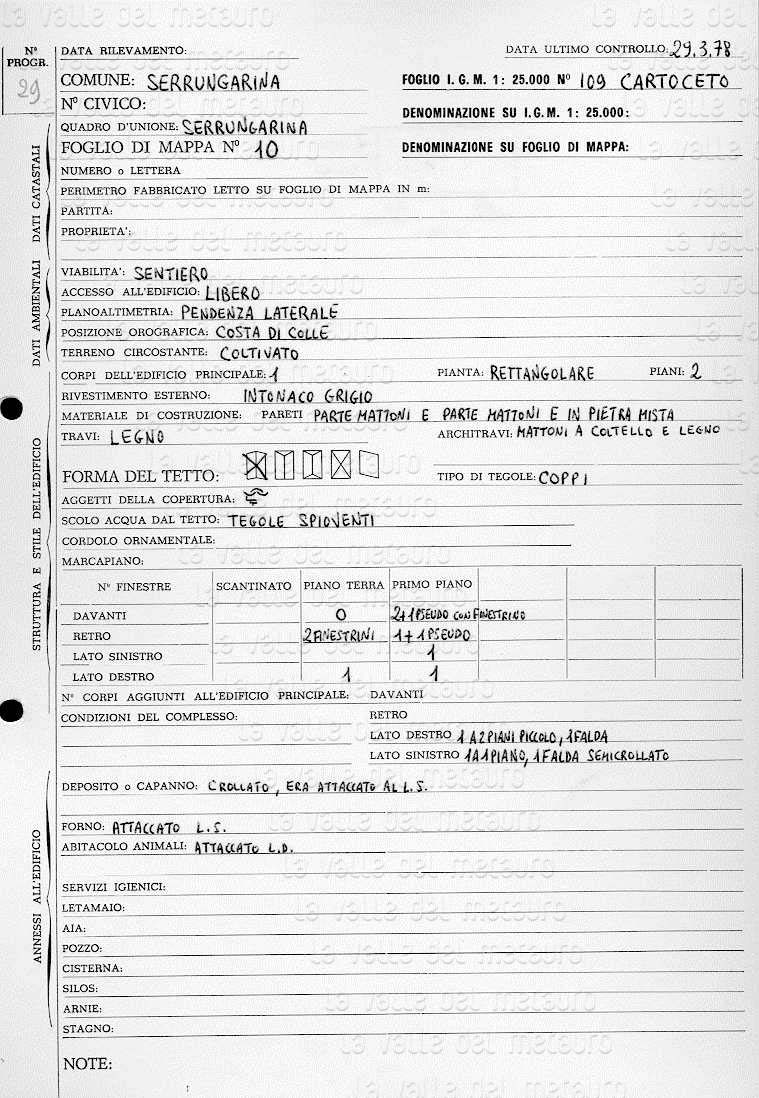 la valle del metauro
Nº PROGR. 29
DATA RILEVAMENTO: DATA ULTIMO CONTROLLO: 29.3.78
COMUNE: SERRUNGARINA FOGLIO I.G.M. 1: 25.000 Nº 109 CARTOCETO
Nº CIVICO: DENOMINAZIONE SU I.G.M. 1: 25.000:
QUADRO D'UNIONE: SERRUNGARINA
FOGLIO DI MAPPA Nº 10 DENOMINAZIONE SU FOGLIO DI MAPPA:
NUMERO o LETTERA
PERIMETRO FABBRICATO LETTO SU FOGLIO DI MAPPA IN m:
PARTITA:
PROPRIETA':
DATI CATASTALI
VIABILITA': SENTIERO
ACCESSO ALL'EDIFICIO: LIBERO
PLANOALTIMETRIA: PENDENZA LATERALE
POSIZIONE OROGRAFICA: COSTA DI COLLE
TERRENO CIRCOSTANTE: COLTIVATO
DATI AMBIENTALI
CORPI DELL'EDIFICIO PRINCIPALE: 1 PIANTA: RETTANGOLARE PIANI: 2
RIVESTIMENTO ESTERNO: INTONACO GRIGIO
MATERIALE DI COSTRUZIONE: PARETI PARTE MATTONI E PARTE MATTONI E IN PIETRA MISTA
TRAVI: LEGNO ARCHITRAVI: MATTONI A COLTELLO E LEGNO
FORMA DEL TETTO: TIPO DI TEGOLE: COPPI
AGGETTI DELLA COPERTURA:
SCOLO ACQUA DAL TETTO: TEGOLE SPIOVENTI
CORDOLO ORNAMENTALE:
MARCAPIANO:
Nº FINESTRE SCANTINATO PIANO TERRA PRIMO PIANO
DAVANTI 0 2+1 PSEUDO CON FINESTRINO
RETRO 2 FINESTRINI 1+1 PSEUDO
LATO SINISTRO 1
LATO DESTRO 1 1
STRUTTURA E STILE DELL'EDIFICIO
Nº CORPI AGGIUNTI ALL'EDIFICIO PRINCIPALE: DAVANTI
CONDIZIONI DEL COMPLESSO: RETRO
LATO DESTRO 1 A 2 PIANI PICCOLO, 1 FALDA
LATO SINISTRO 1 A 1 PIANO, 1 FALDA SEMICROLLATO
DEPOSITO o CAPANNO: CROLLATO, ERA ATTACCATO AL L.S.
FORNO: ATTACCATO L.S.
ABITACOLO ANIMALI: ATTACCATO L.D.
SERVIZI IGIENICI:
LETAMAIO:
AIA:
POZZO:
CISTERNA:
SILOS:
ARNIE:
STAGNO:
ANNESSI ALL'EDIFICIO
NOTE: